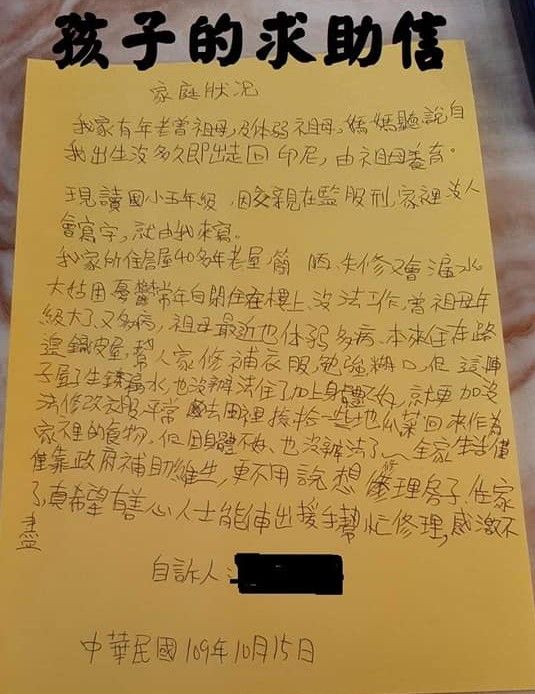 孩子的求助信
家庭狀况
我家有年老曾祖母,及体弱祖母,媽媽聽說自
我出生沒多久即出走回印尼,由祖母養育。
現讀國小五年級,因父親在監服刑,家裡沒人
會寫字,就由我來寫。
我家所住房屋40多年老屋,簡陋、失修又會漏水
大姑因憂鬱常年自閉住在樓上、沒法工作,曾祖母年
級大了、又多病,祖母最近也体弱多病、本來住在路
邊鐵皮屋,幫人家修補衣服,勉強糊口,但這陣
子屋了生銹漏水,也沒辦法住了加上身體不好,就更加沒
法修改衣服平常去田裡撿拾一些地瓜菜回來作為
家裡的食物,但因身體不好、也沒辦法了~全家生活僅
僅靠政府補助維生,更不用說想修理房子住家
了真希望有善心人士能伸出援手幫忙修理,感激不
盡
自訴人:
中華民國109年10月15日